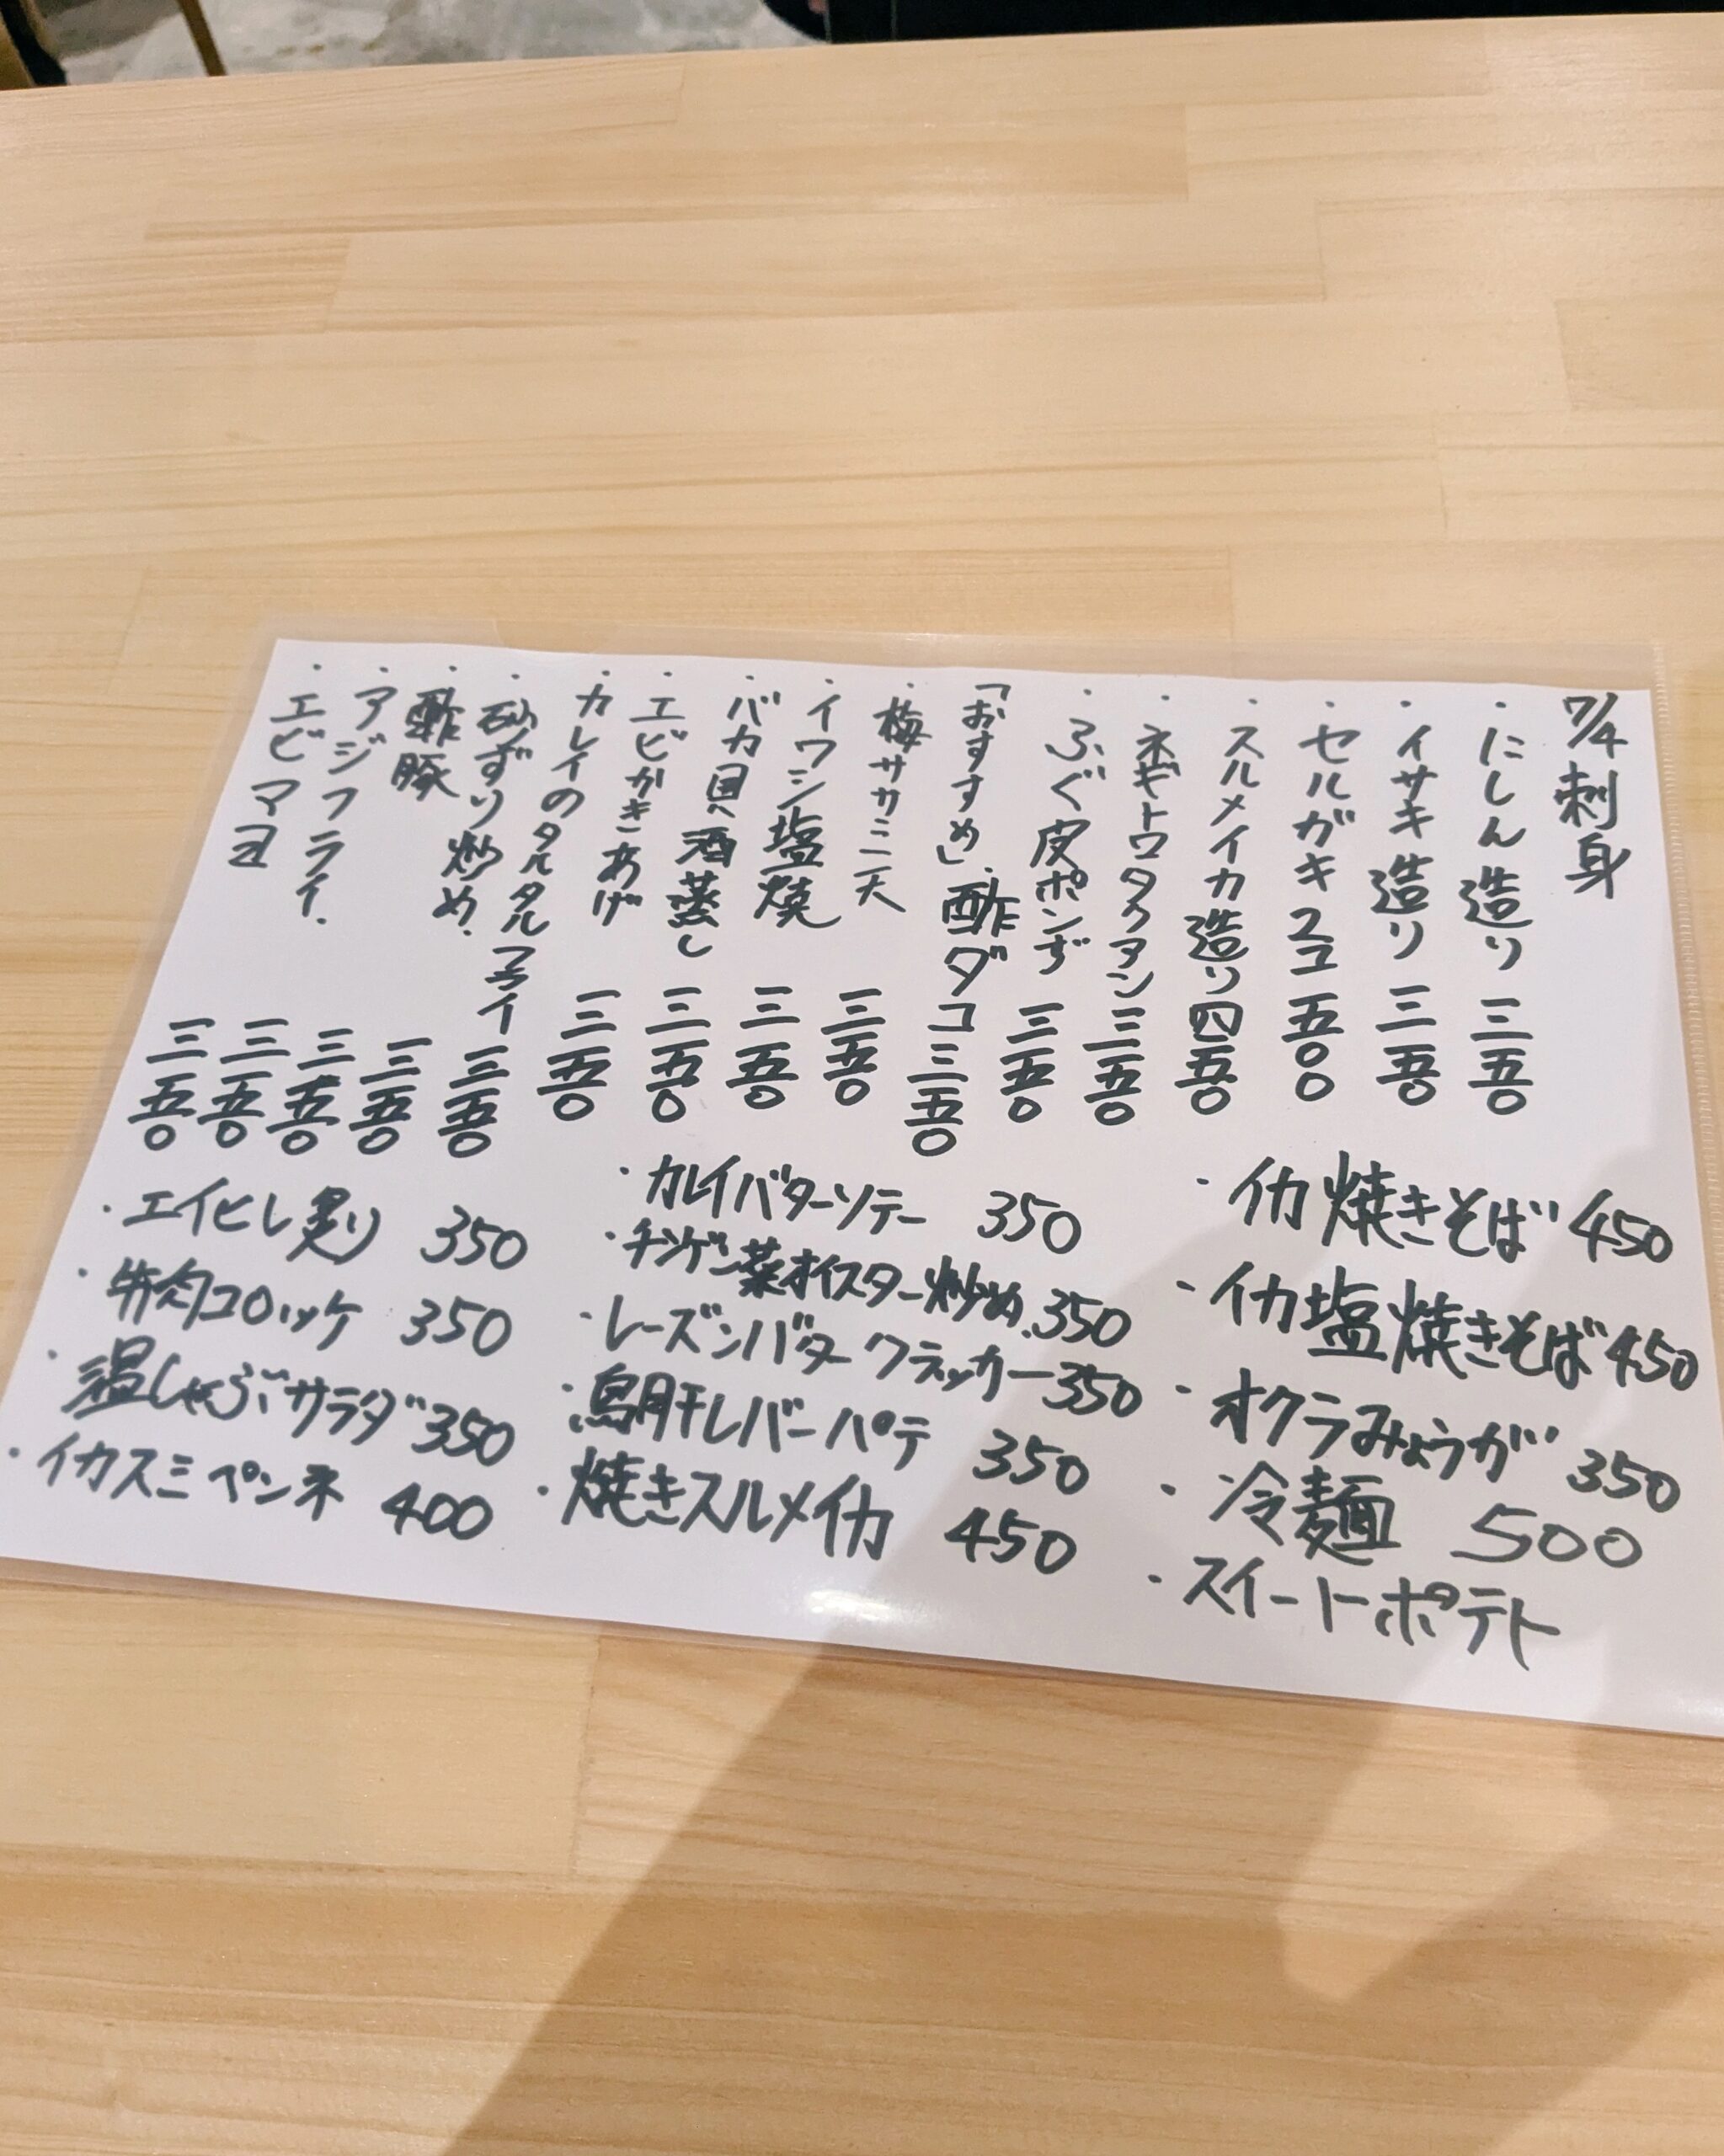 7/4 刺身
・にしん造り 三五〇
・イサキ造り 三五〇
・セルガキ 2コ 五〇〇
・スルメイカ造り 四五〇
・ネギトロタクアン 三五〇
・ふぐ皮ポンず 三五〇
「おすすめ」・酢ダコ 三五〇
・梅ササミ天 三五〇
・イワシ塩焼 三五〇
・バカ貝酒蒸し 三五〇
・エビかきあげ 三五〇
・カレイのタルタルフライ 三五〇
・砂ずり炒め 三五〇
・酢豚 三五〇
・アジフライ 三五〇
・エビマヨ 三五〇
・イカ焼きそば 450
・イカ塩焼きそば 450
・オクラみょうが 350
・冷麺 500
・スイートポテト
・カレイバターソテー 350
・チンゲン菜オイスター炒め 350
・レーズンバタークラッカー 350
・鳥肝レバーパテ 350
・焼きスルメイカ 450
・エイヒレ炙り 350
・牛肉コロッケ 350
・温しゃぶサラダ 350
・イカスミペンネ 400